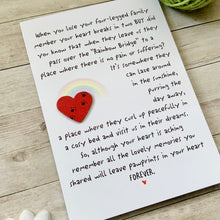 When you lose your four-legged family
member your heart breaks in two BUT did
you know that when they leave us they
pass over the "Rainbow Bridge" to a
place where there is no pain or suffering?
It's somewhere they
can laze around
in the sunshine,
purring the
day away,
a place where they curl up peacefully in
a cosy bed and visit us in their dreams.
So, although your heart is aching,
remember all the lovely memories you
shared will leave pawprints in your heart
FOREVER.